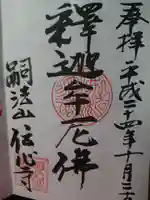 奉拝 平成二十四年十月二十
釋迦牟尼佛
嗣法山 伝心寺